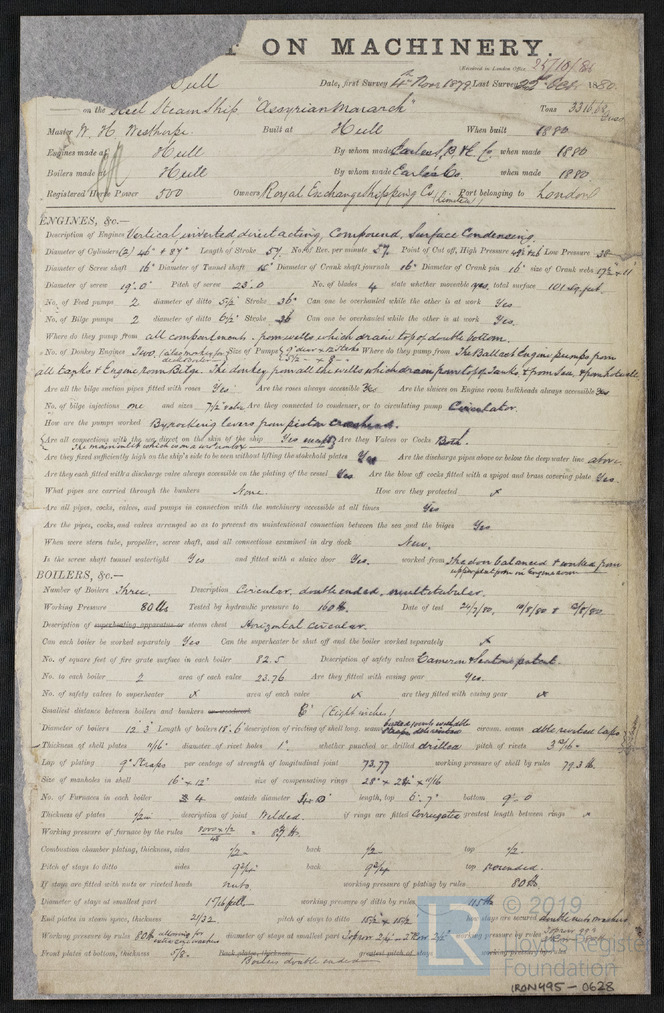 T ON MACHINERY.
(Received in London Office 25/10/80
Hull Date, first Survey 4th Novr 1879 Last Survey 22nd Oct. 1880.
on the Steel Steam Ship "Assyrian Monarch" Tons 3316.62
Master W. H. Westhorpe. Built at Hull When built 1880.
Engines made at Hull By whom made Earles S. B. & E. Co. when made 1880
Boilers made at Hull By whom made Earle's Co. when made 1880.
Registered Horse Power 500 Owners Royal Exchange Shipping Co. (Limited) Port belonging to London
ENGINES, &c.—
Description of Engines Vertical, inverted direct acting, Compound, Surface Condensing.
Diameter of Cylinders (2) 46" + 87" Length of Stroke 57 No. of Rev. per minute Point of Cut off, High Pressure Low Pressure 38
Diameter of Screw shaft 16" Diameter of Tunnel shaft 15" Diameter of Crank shaft journals 16" Diameter of Crank pin 16" size of Crank webs 17½ × 11"
Diameter of screw 19'.0" Pitch of screw 23.0 No. of blades 4 state whether moveable yes. total surface 101 sq. feet.
No. of Feed pumps 2 diameter of ditto 5½" Stroke 36" Can one be overhauled while the other is at work Yes
No. of Bilge pumps 2 diameter of ditto 6½" Stroke 36 Can one be overhauled while the other is at work Yes.
Where do they pump from all compartments, from wells which drain top of double bottom.
No. of Donkey Engines Two, Size of Pumps Where do they pump from The Ballast Engine pumps from
all tanks & Engine room Bilge. The donkey from all the wells which drain from top of tanks & from Sea, & from hotwell
Are all the bilge suction pipes fitted with roses Yes Are the roses always accessible Yes Are the sluices on Engine room bulkheads always accessible Yes
No. of bilge injections one and sizes 7½" Are they connected to condenser, or to circulating pump Circulator.
How are the pumps worked By rocking levers from piston crosshead.
Are all connections with the sea direct on the skin of the ship Yes except Are they Valves or Cocks Both.
Are they fixed sufficiently high on the ship's side to be seen without lifting the stokehold plates Yes Are the discharge pipes above or below the deep water line above.
Are they each fitted with a discharge valve always accessible on the plating of the vessel Yes Are the blow off cocks fitted with a spigot and brass covering plate Yes.
What pipes are carried through the bunkers None. How are they protected
Are all pipes, cocks, valves, and pumps in connection with the machinery accessible at all times Yes
Are the pipes, cocks, and valves arranged so as to prevent an unintentional connection between the sea and the bilges Yes
When were stern tube, propeller, screw shaft, and all connections examined in dry dock New.
Is the screw shaft tunnel watertight Yes and fitted with a sluice door Yes. worked from The door balanced & worked from
upper platform in Engine room
BOILERS, &c.—
Number of Boilers Three. Description Circular, double ended, multitubular.
Working Pressure 80 lbs Tested by hydraulic pressure to 160 lb. Date of test
Description of superheating apparatus or steam chest Horizontal Circular.
Can each boiler be worked separately Yes Can the superheater be shut off and the boiler worked separately
No. of square feet of fire grate surface in each boiler 82.5 Description of safety valves Cameron & Seaton patent.
No. to each boiler 2 area of each valve 23.76 Are they fitted with easing gear Yes.
No. of safety valves to superheater area of each valve are they fitted with easing gear
Smallest distance between boilers and bunkers 8" (Eight inches)
Diameter of boilers 12'.3" Length of boilers 18'.6" description of riveting of shell long. seams circum. seams dble riveted laps
Thickness of shell plates 11/16" diameter of rivet holes 1" whether punched or drilled drilled pitch of rivets
Lap of plating 9" Straps per centage of strength of longitudinal joint 73.77 working pressure of shell by rules 79.3 lb.
Size of manholes in shell 16" × 12" size of compensating rings
No. of Furnaces in each boiler 4 outside diameter length, top 6'.7" bottom 9'.0
Thickness of plates ½" description of joint Welded. if rings are fitted Corrugated greatest length between rings
Working pressure of furnace by the rules
Combustion chamber plating, thickness, sides ½ back ½ top ½.
Pitch of stays to ditto sides back top rounded.
If stays are fitted with nuts or riveted heads nuts. working pressure of plating by rules 80 lb.
Diameter of stays at smallest part working pressure of ditto by rules 115 lb
End plates in steam space, thickness 21/32 pitch of stays to ditto 15½ × 15½ how stays are secured double nuts & washers
Working pressure by rules 80 lb allowing for diameter of stays at smallest part working pressure by rules
Front plates at bottom, thickness 5/8. Back plates, thickness greatest pitch of stays working pressure by rules
Boilers double ended
© 2019
Lloyd's Register
Foundation
IRON495 - 0628